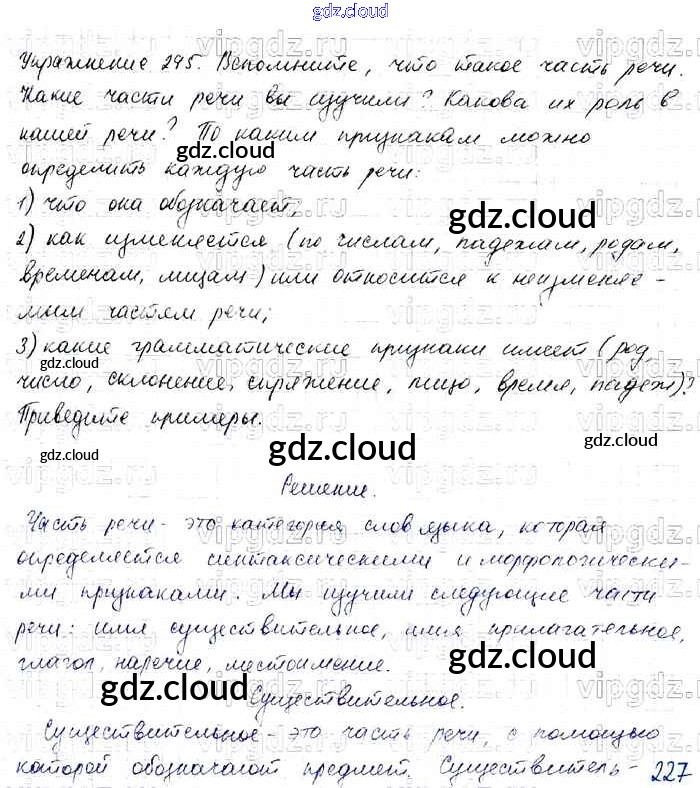 gdz.cloud
Упражнение 295. Вспомните, что такое часть речи.
Какие части речи вы изучили? Какова их роль в
нашей речи? По каким признакам можно
определить каждую часть речи:
1) что она обозначает;
2) как изменяется (по числам, падежам, родам,
временам, лицам) или относится к неизменяе-
мым частям речи;
3) какие грамматические признаки имеет (род,
число, склонение, спряжение, лицо, время, падеж)?
Приведите примеры.
Решение.
Часть речи - это категория слов языка, которая
определяется синтаксическими и морфологически-
ми признаками. Мы изучили следующие части
речи: имя существительное, имя прилагательное,
глагол, наречие, местоимение.
Существительное.
Существительное - это часть речи, с помощью
которой обозначают предмет. Существитель-
227